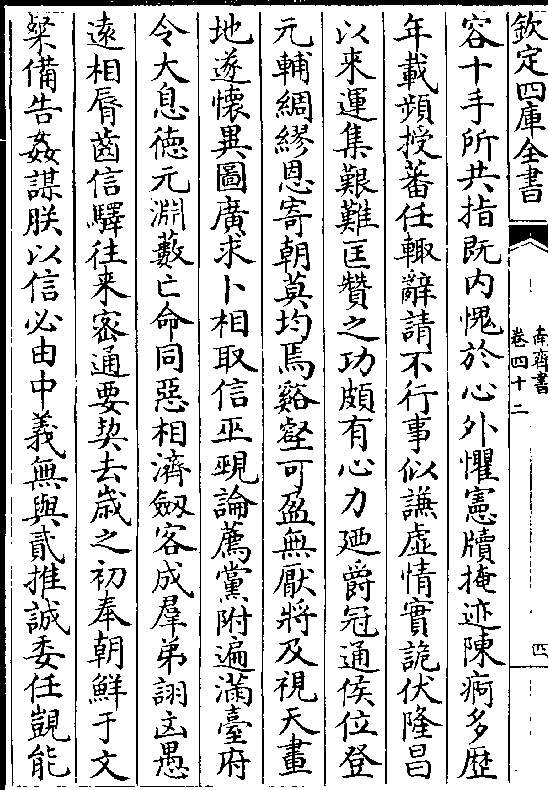 欽定四庫全書
南齊書
卷四十二
四
容十手所共指既内愧於心外懼憲牘掩迹陳痾多歴
年載頻授蕃任輙辭請不行事似謙虚情實詭伏隆昌
以来運集艱難匡贊之功頗有心力廼爵冠通侯位登
元輔綢繆恩寄朝莫均焉谿壑可盈無厭將及視天畫
地遂懷異圖廣求卜相取信巫覡論薦黨附遍滿臺府
令大息徳元淵藪亡命同惡相濟劔客成羣弟詡凶愚
逺相脣齒信驛往来宻通要契去嵗之初奉朝鮮于文
粲備告姦謀朕以信必由中義無與貳推誠委任覬能